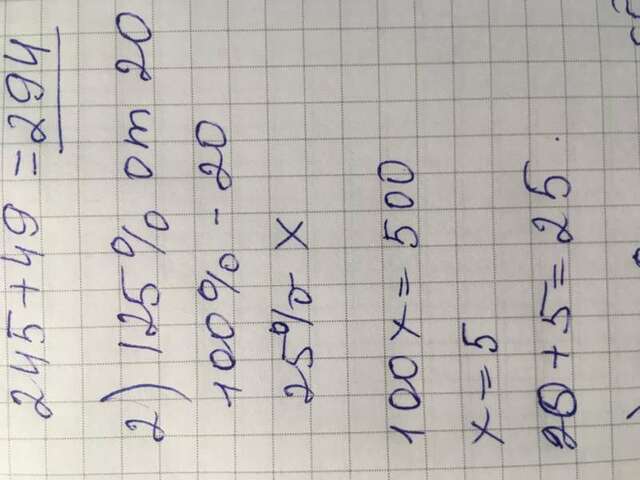 245+49 = 294
2) 125% от 20
100% - 20
25% - x
100x = 500
x = 5
20 + 5 = 25.